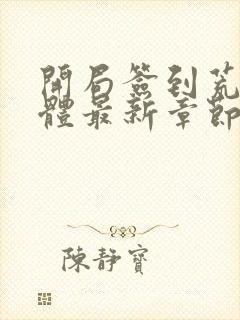 開局簽到荒
體最新章節
陳靜寶